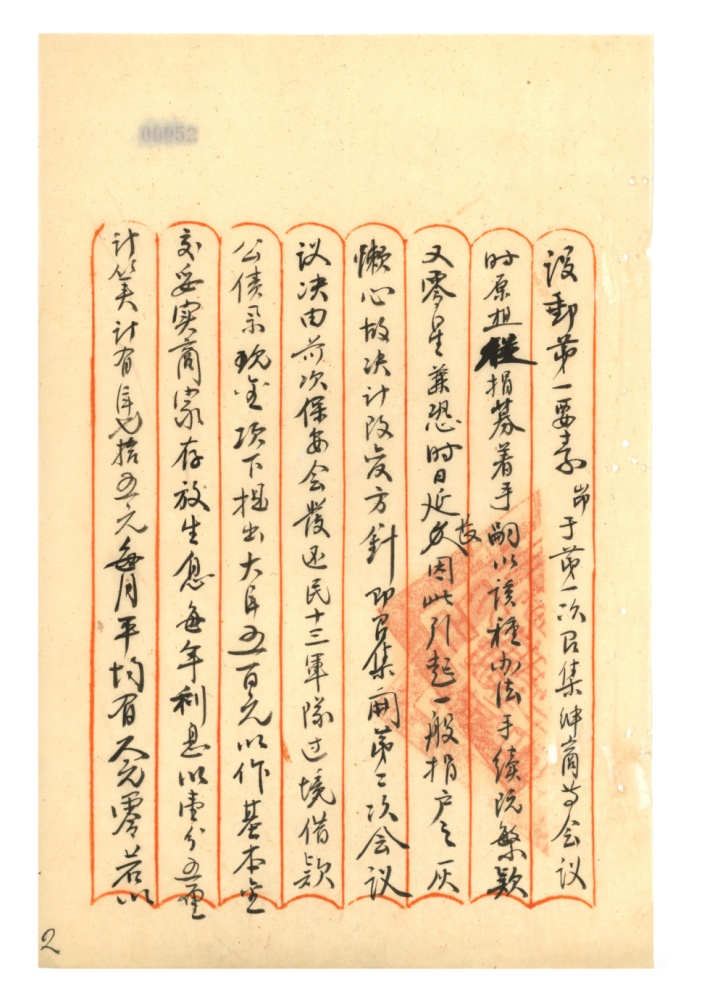 00952
设郵第一要素 峕于第一次召集绅商等会议
时原拟從捐募着手嗣以该種办法手续既繁款
又零星兼恐时日延久故因此引起一般捐户之灰
懒心故决计改变方針即召集開第二次会议
议决由前次保安会發还民十三軍隊过境借款
公债票现金项下提出大洋五百元以作基本金
交妥实商家存放生息每年利息以壹分五厘
计算计有洋七拾五元每月平均有六元零若以
2